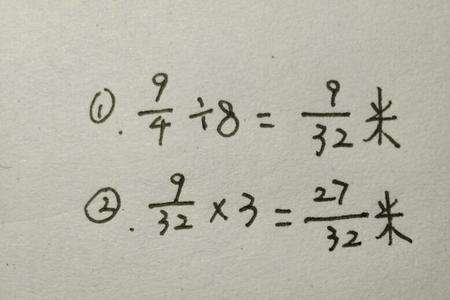 ①. 9/4 ÷ 8 = 9/32 米
②. 9/32 × 3 = 27/32 米